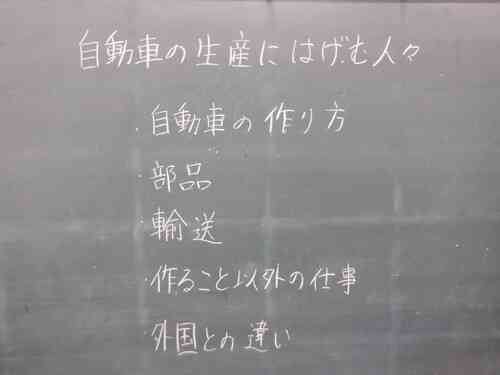 自動車の生産にはげむ人々
・自動車の作り方
・部品
・輸送
・作ること以外の仕事
・外国との違い